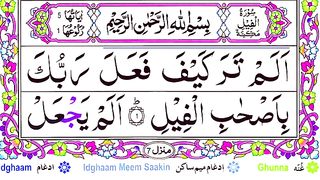 سُوْرَةُ الْفِيْلِ مَكِّيَّةٌ
بِسْمِ اللهِ الرَّحْمٰنِ الرَّحِيْمِ
اَلَمْ تَرَ كَيْفَ فَعَلَ رَبُّكَ
بِاَصْحٰبِ الْفِيْلِ ۝١ اَلَمْ يَجْعَلْ
منزل ٧
dghaam ادغام Idghaam Meem Saakin ادغام میم ساکن Ghunna غنّہ